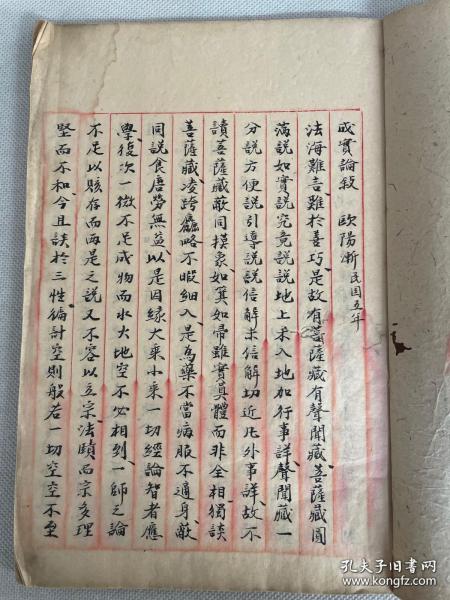 成實論敍 歐陽漸 民国五年
法海難言雖於善巧是故有菩薩藏有聲聞藏菩薩藏圓
滿說如實說究竟說說地上未入地加行事詳聲聞藏一
分說方便說引導說說信解未信解切近凡外事詳故不
讀菩薩藏敵同摸象如箕如帚雖實真體而非全相獨談
菩薩藏凌跨麤略不暇細入是為藥不當病服不通身敵
同說食唐勞無益以是因緣大乘小乘一切經論智者應
學復次一微不足成物而水火地空不必相列一師之論
不足以賅存而兩是之說又不容以立宗法賾而宗多理
堅而不和今且談於三性徧計空則般若一切空空不至
孔夫子旧书网
www.kongfz.com